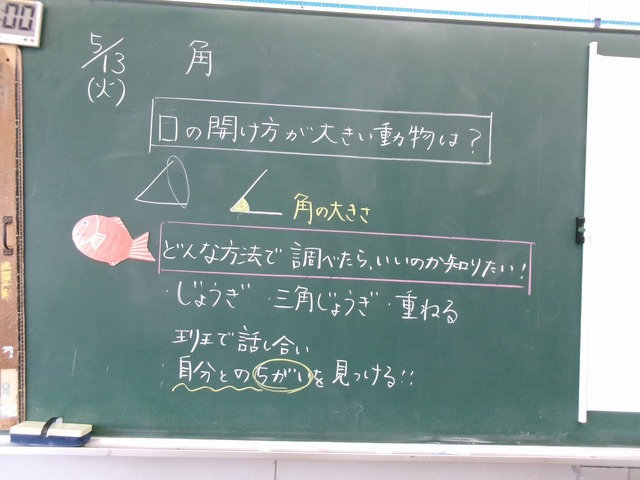 00
5/13
(火)
角
口の開け方が大きい動物は?
角の大きさ
どんな方法で調べたら、いいのか知りたい!
・じょうぎ ・三角じょうぎ ・重ねる
班で話し合い
自分とのちがいを見つける!!